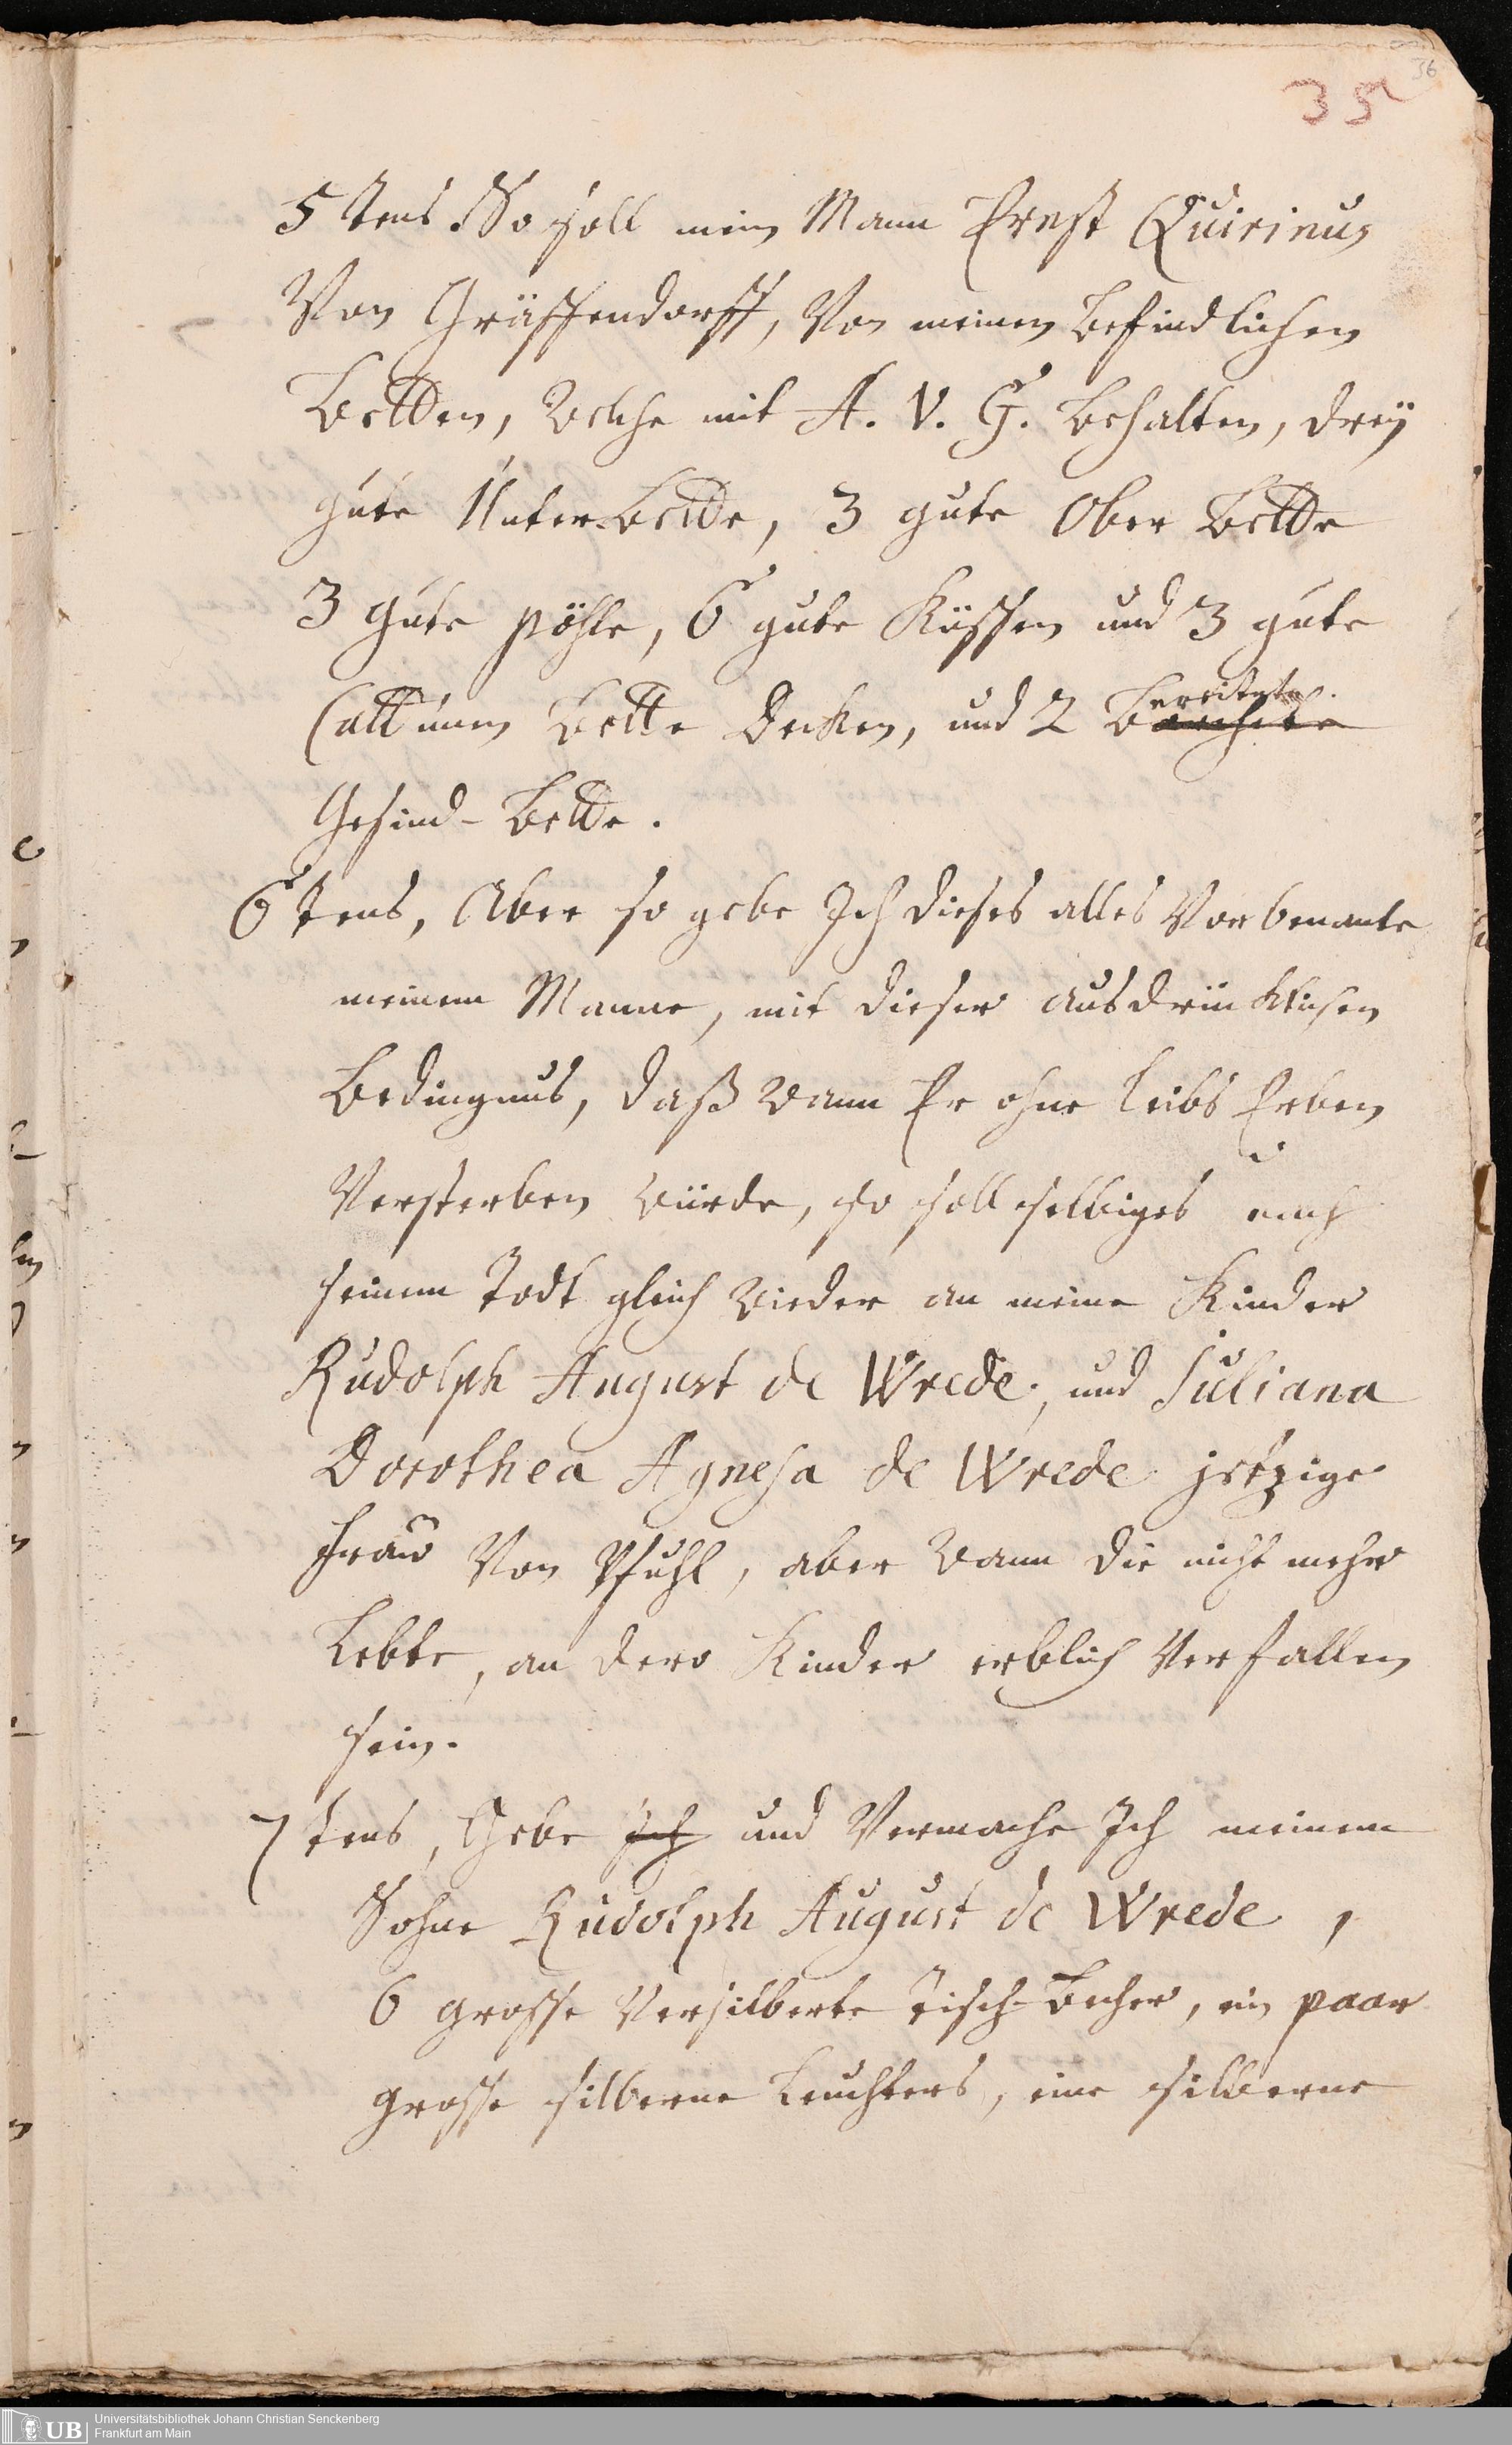 36
35
5 tens. So soll mein Mann Ernst Quirinus
Von Gräffendorff, Von meinen befindlichen
Betten, Welche mit A. V. G. behalten, dreÿ
gute Unter-Bette, 3 gute Ober Bette
3 gute pöhle, 6 gute Küssen und 3 gute
Cattunen Bette Decken, und 2
Gesind-Bette.
6 tens, Aber so gebe Ich dieses alles Vorbenante
meinem Manne, mit dieser ausdrücklichen
Bedingnus, daß Wann Er ohne Leibs Erben
Versterben Würde, so soll selbiges nach
seinem Todt gleich Wieder an meine Kinder
Rudolph August de Wrede, und Juliana
Dorothea Agnesa de Wrede jetzige
Frau Von Pfuhl, aber Wann die nicht mehr
Lebte, an dero Kinder erblich Verfallen
sein.
7 tens, Gebe Ich und Vermache Ich meinem
Sohne Rudolph August de Wrede,
6 grosse Versilberte Tisch-Becher, ein paar
grosse silberne Leuchters, eine silberne
UB
Universitätsbibliothek Johann Christian Senckenberg
Frankfurt am Main